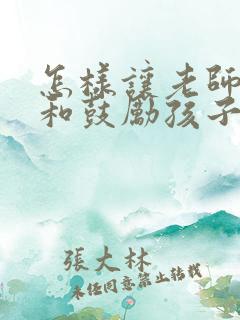 怎様讓老師
和鼓勵孩子
張大林
未经同意禁止转载